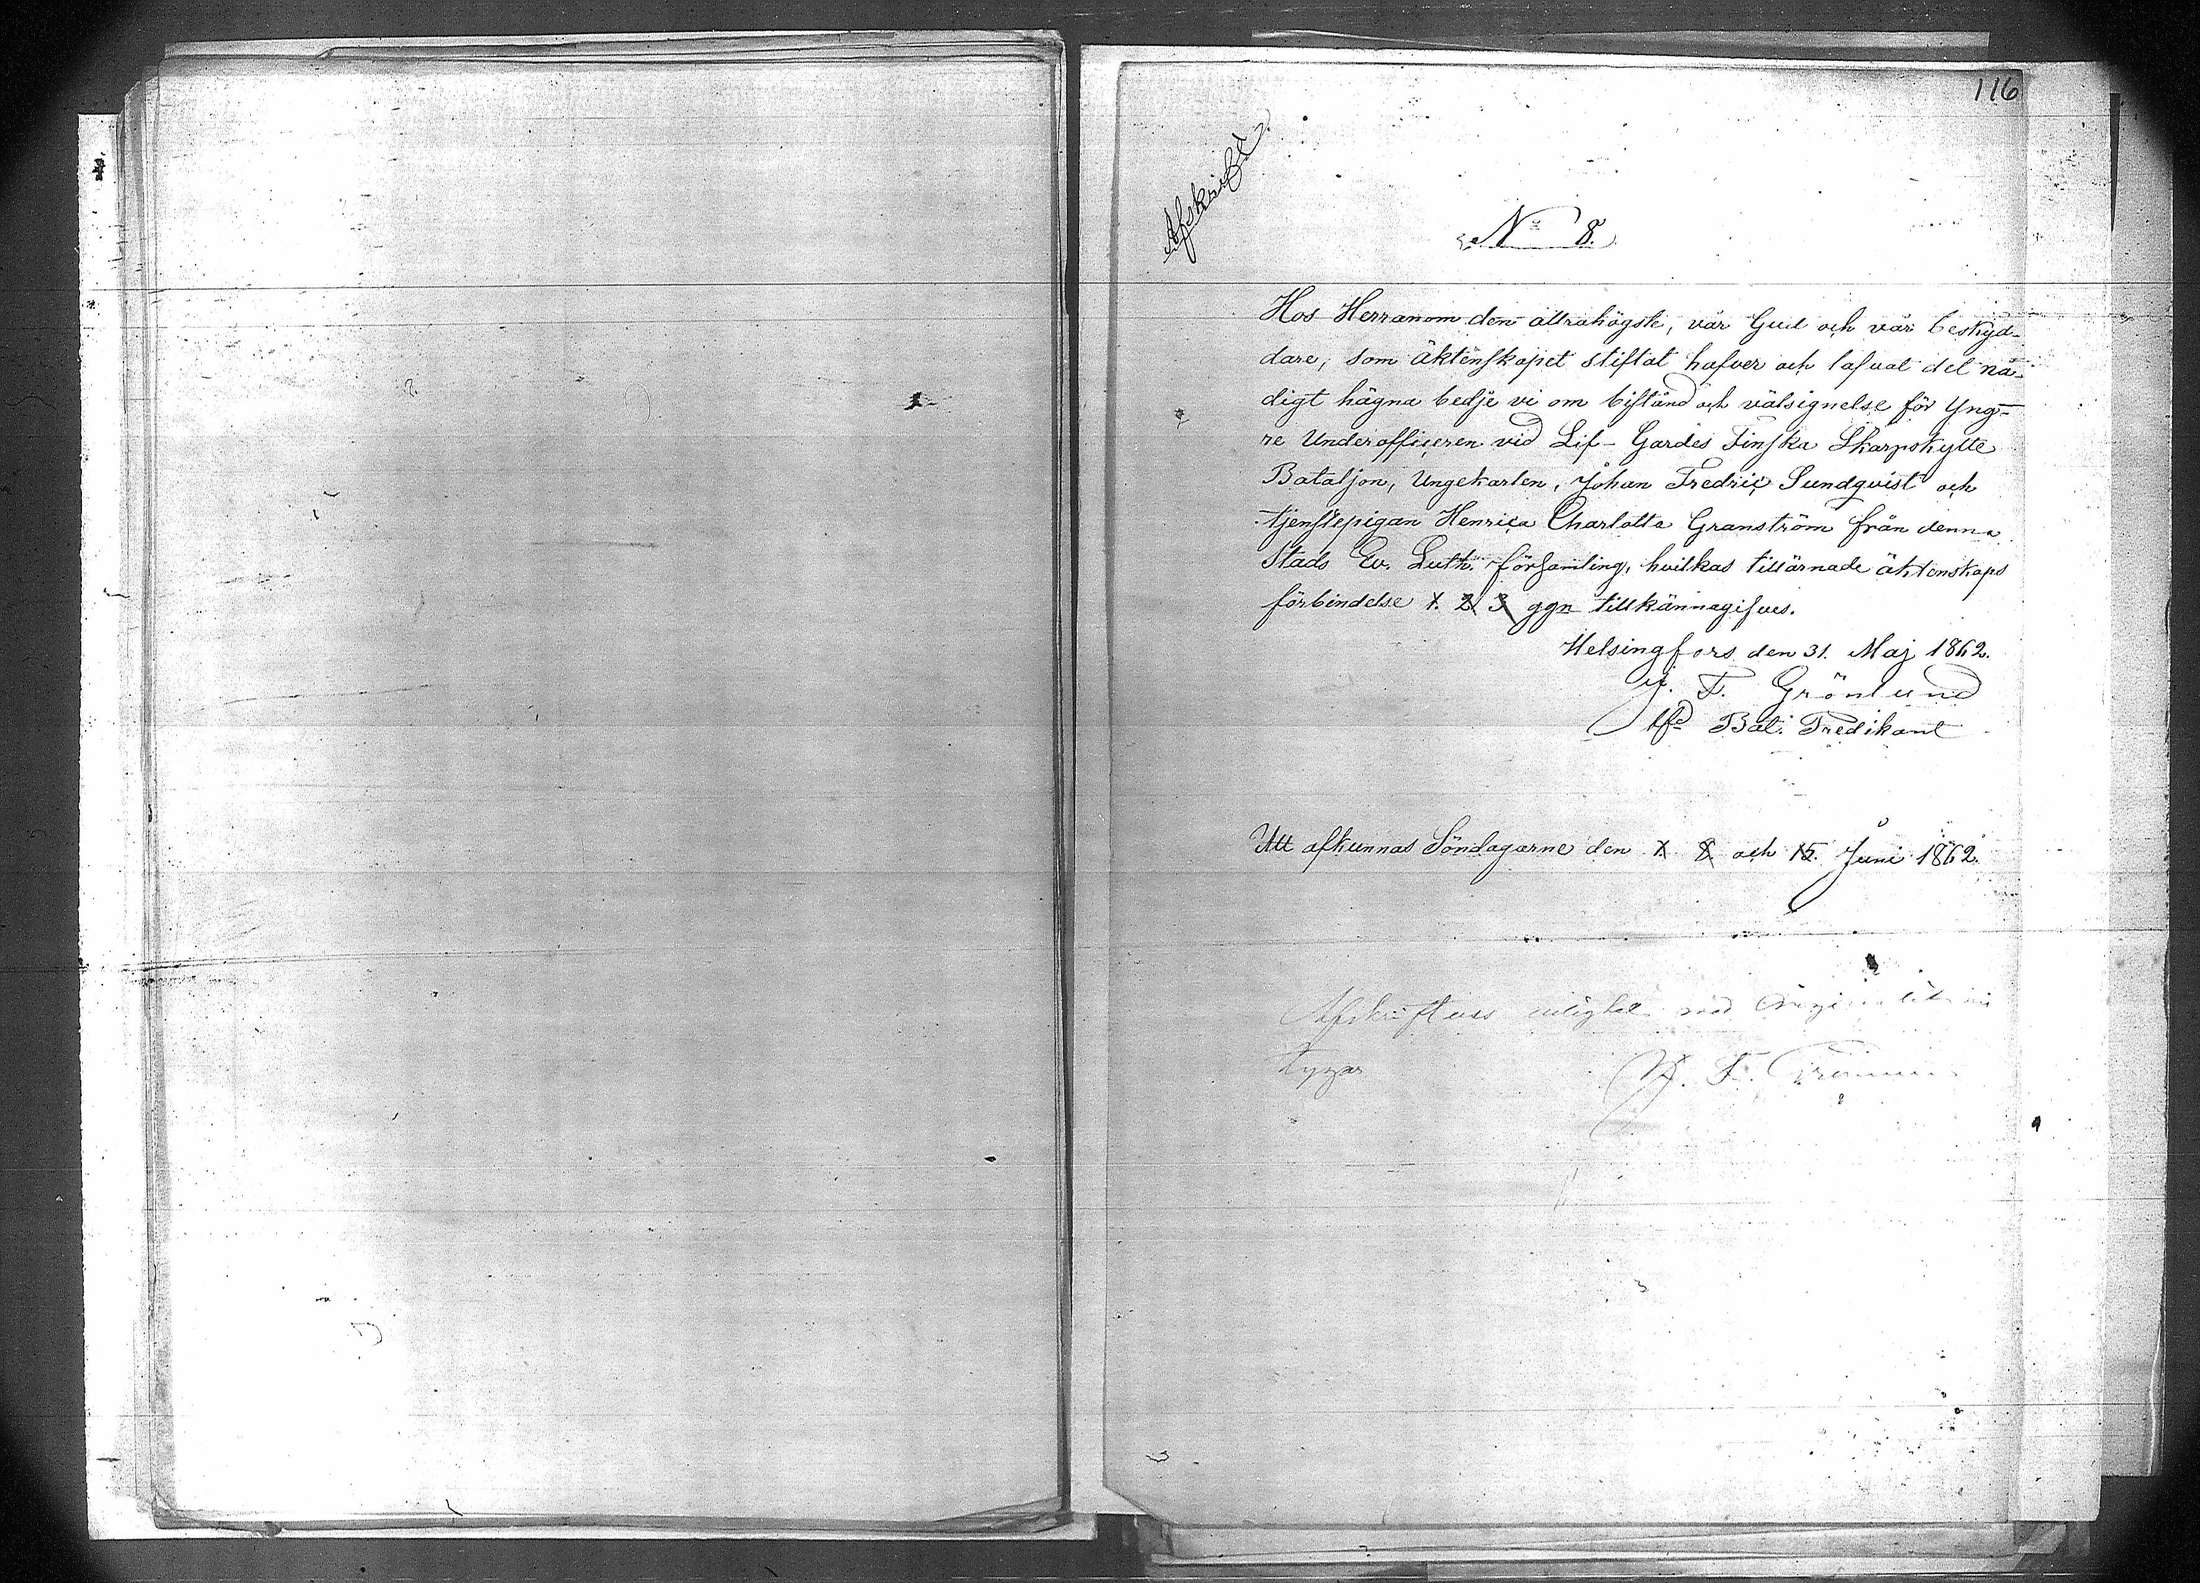 116
Afskrift
No 8.
Hos Herranom den allrahögste, vår Gud och vår beskyd-
dare, som äktenskapet stiftat hafver och lafvat det nå-
digt hägna bedje vi om bistånd och välsignelse för Yng-
re Underofficeren vid Lif-Gardes Finska Skarpskytte
Bataljon, Ungekarlen, Johan Fredric Sundqvist och
tjenstepigan Henrica Charlotta Granström från denna
Stads Ev. Luth. församling, hvilkas tillärnade äktenskaps
förbindelse 1. 2 3 ggn tillkännagifves.
Helsingfors den 31. Maj 1862.
J. F. Grönlund
Tfd Bat. Predikant
Att afkunnas Söndagarne den 1. 8 och 15. Juni 1862.
Afskriftens riktighet med originalet
tygar
J. F.